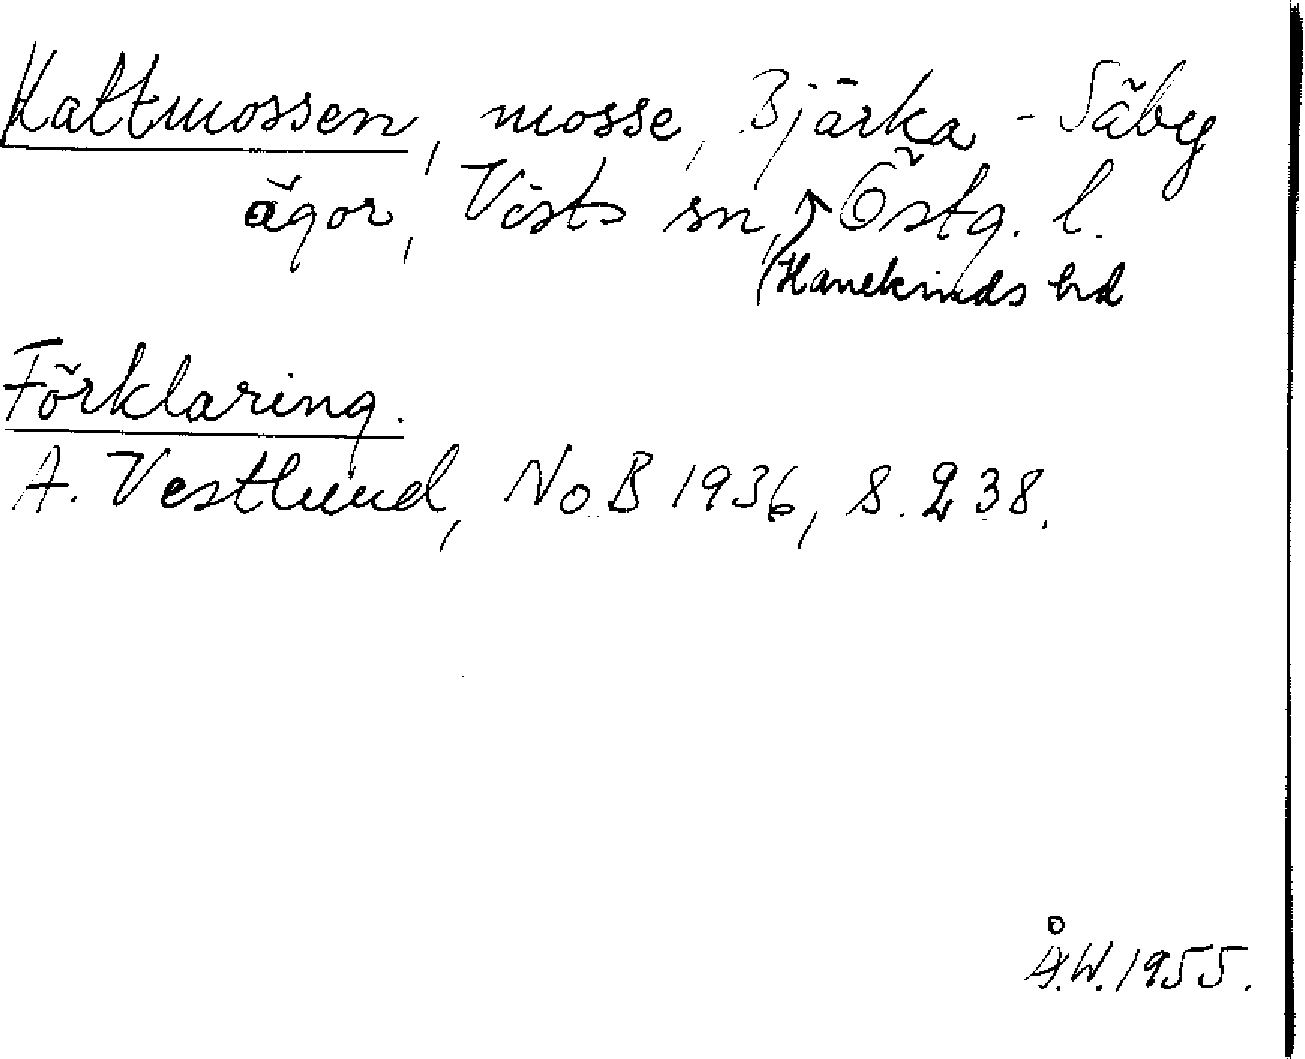 Kattmossen, mosse, Bjärka-Säby
ägor, Vists sn, Östg. l.
(Hanekinds hd
Förklaring.
A. Vestlund, NoB 1936, S. 238.
Å.W. 1955.